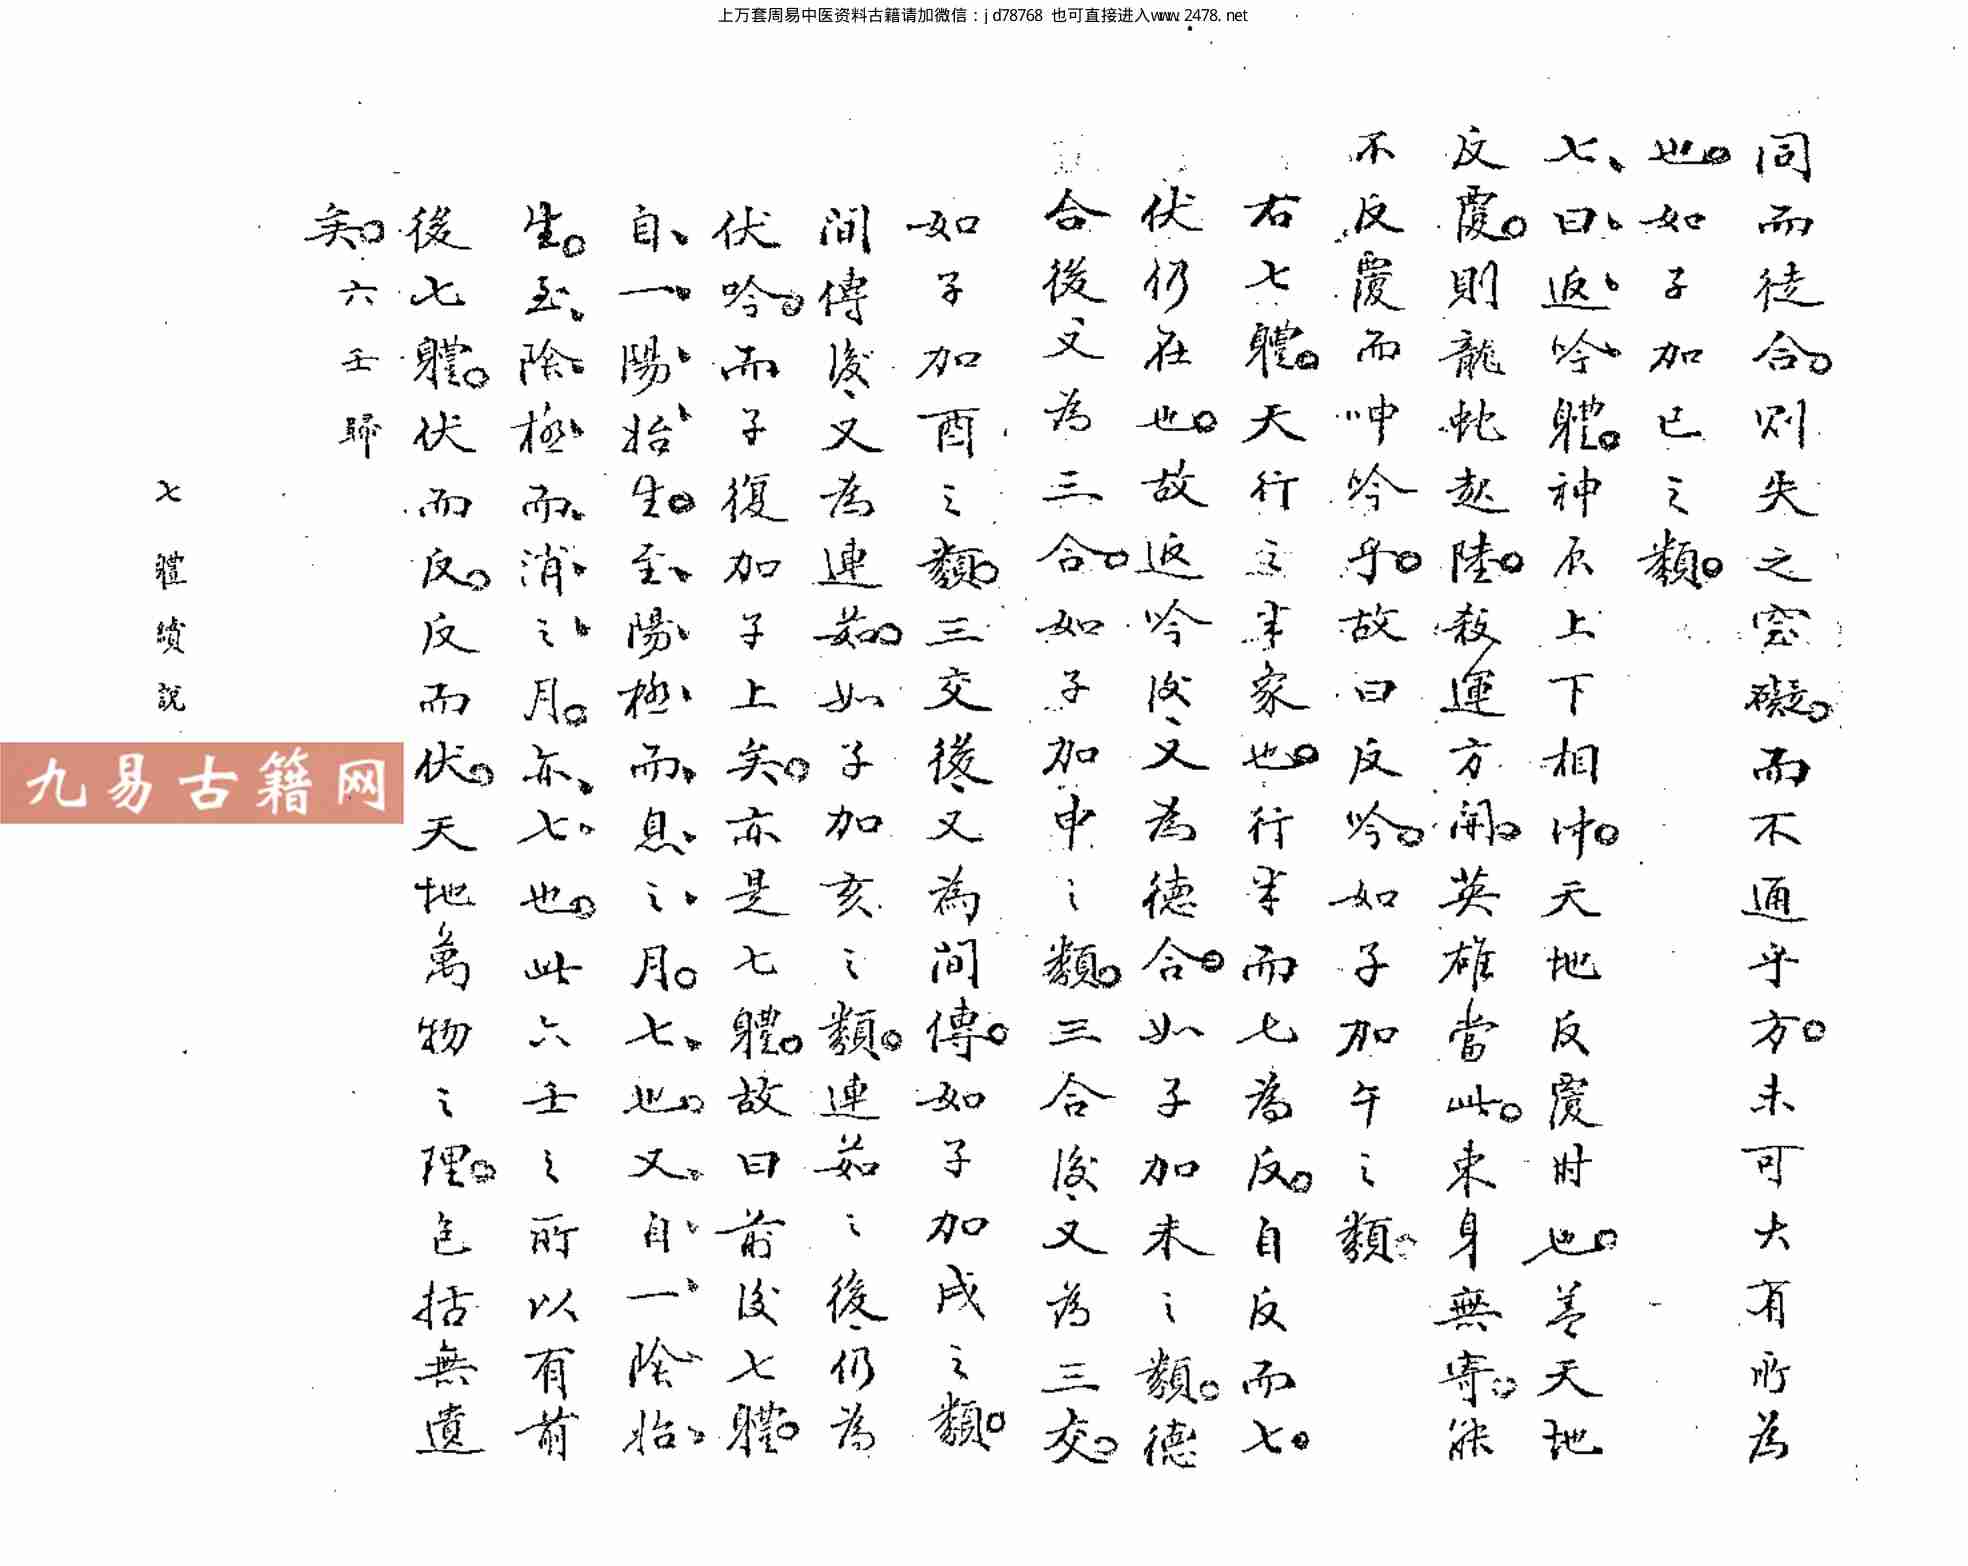 上万套周易中医资料古籍请加微信：jd78768 也可直接进入www.2478.net
同而徒合。则失之窒礙。而不通乎方。未可大有所为
也。如子加巳之類。
七、曰、返、吟、體。神辰上下相冲。天地反覆时也。盖天地
反覆。則龍蛇起陸。殺運方開。英雄當此。束身無寄。能
不反覆而呻吟乎。故曰反吟。如子加午之類。
右七體。天行之半家也。行半而七為反。自反而七。
伏仍在也。故返吟後又為德合。如子加未之類。德
合後又为三合。如子加申之類。三合後又为三交。
如子加酉之類。三交後又為间傳。如子加戌之類。
间傳後又為連茹。如子加亥之類。連茹之後仍为
伏吟。而子復加子上矣。亦是七體。故曰前後七體。
自、一、陽、始、生。至、陽、極、而、息、之、月。七、也。又、自、一、陰、始、
生。至、陰、極、而、消、之、月。亦、七、也。此六壬之所以有前
後七體。伏而反。反而伏。天地萬物之理。包括無遺
矣。六壬歸
七體續說
九易古籍网